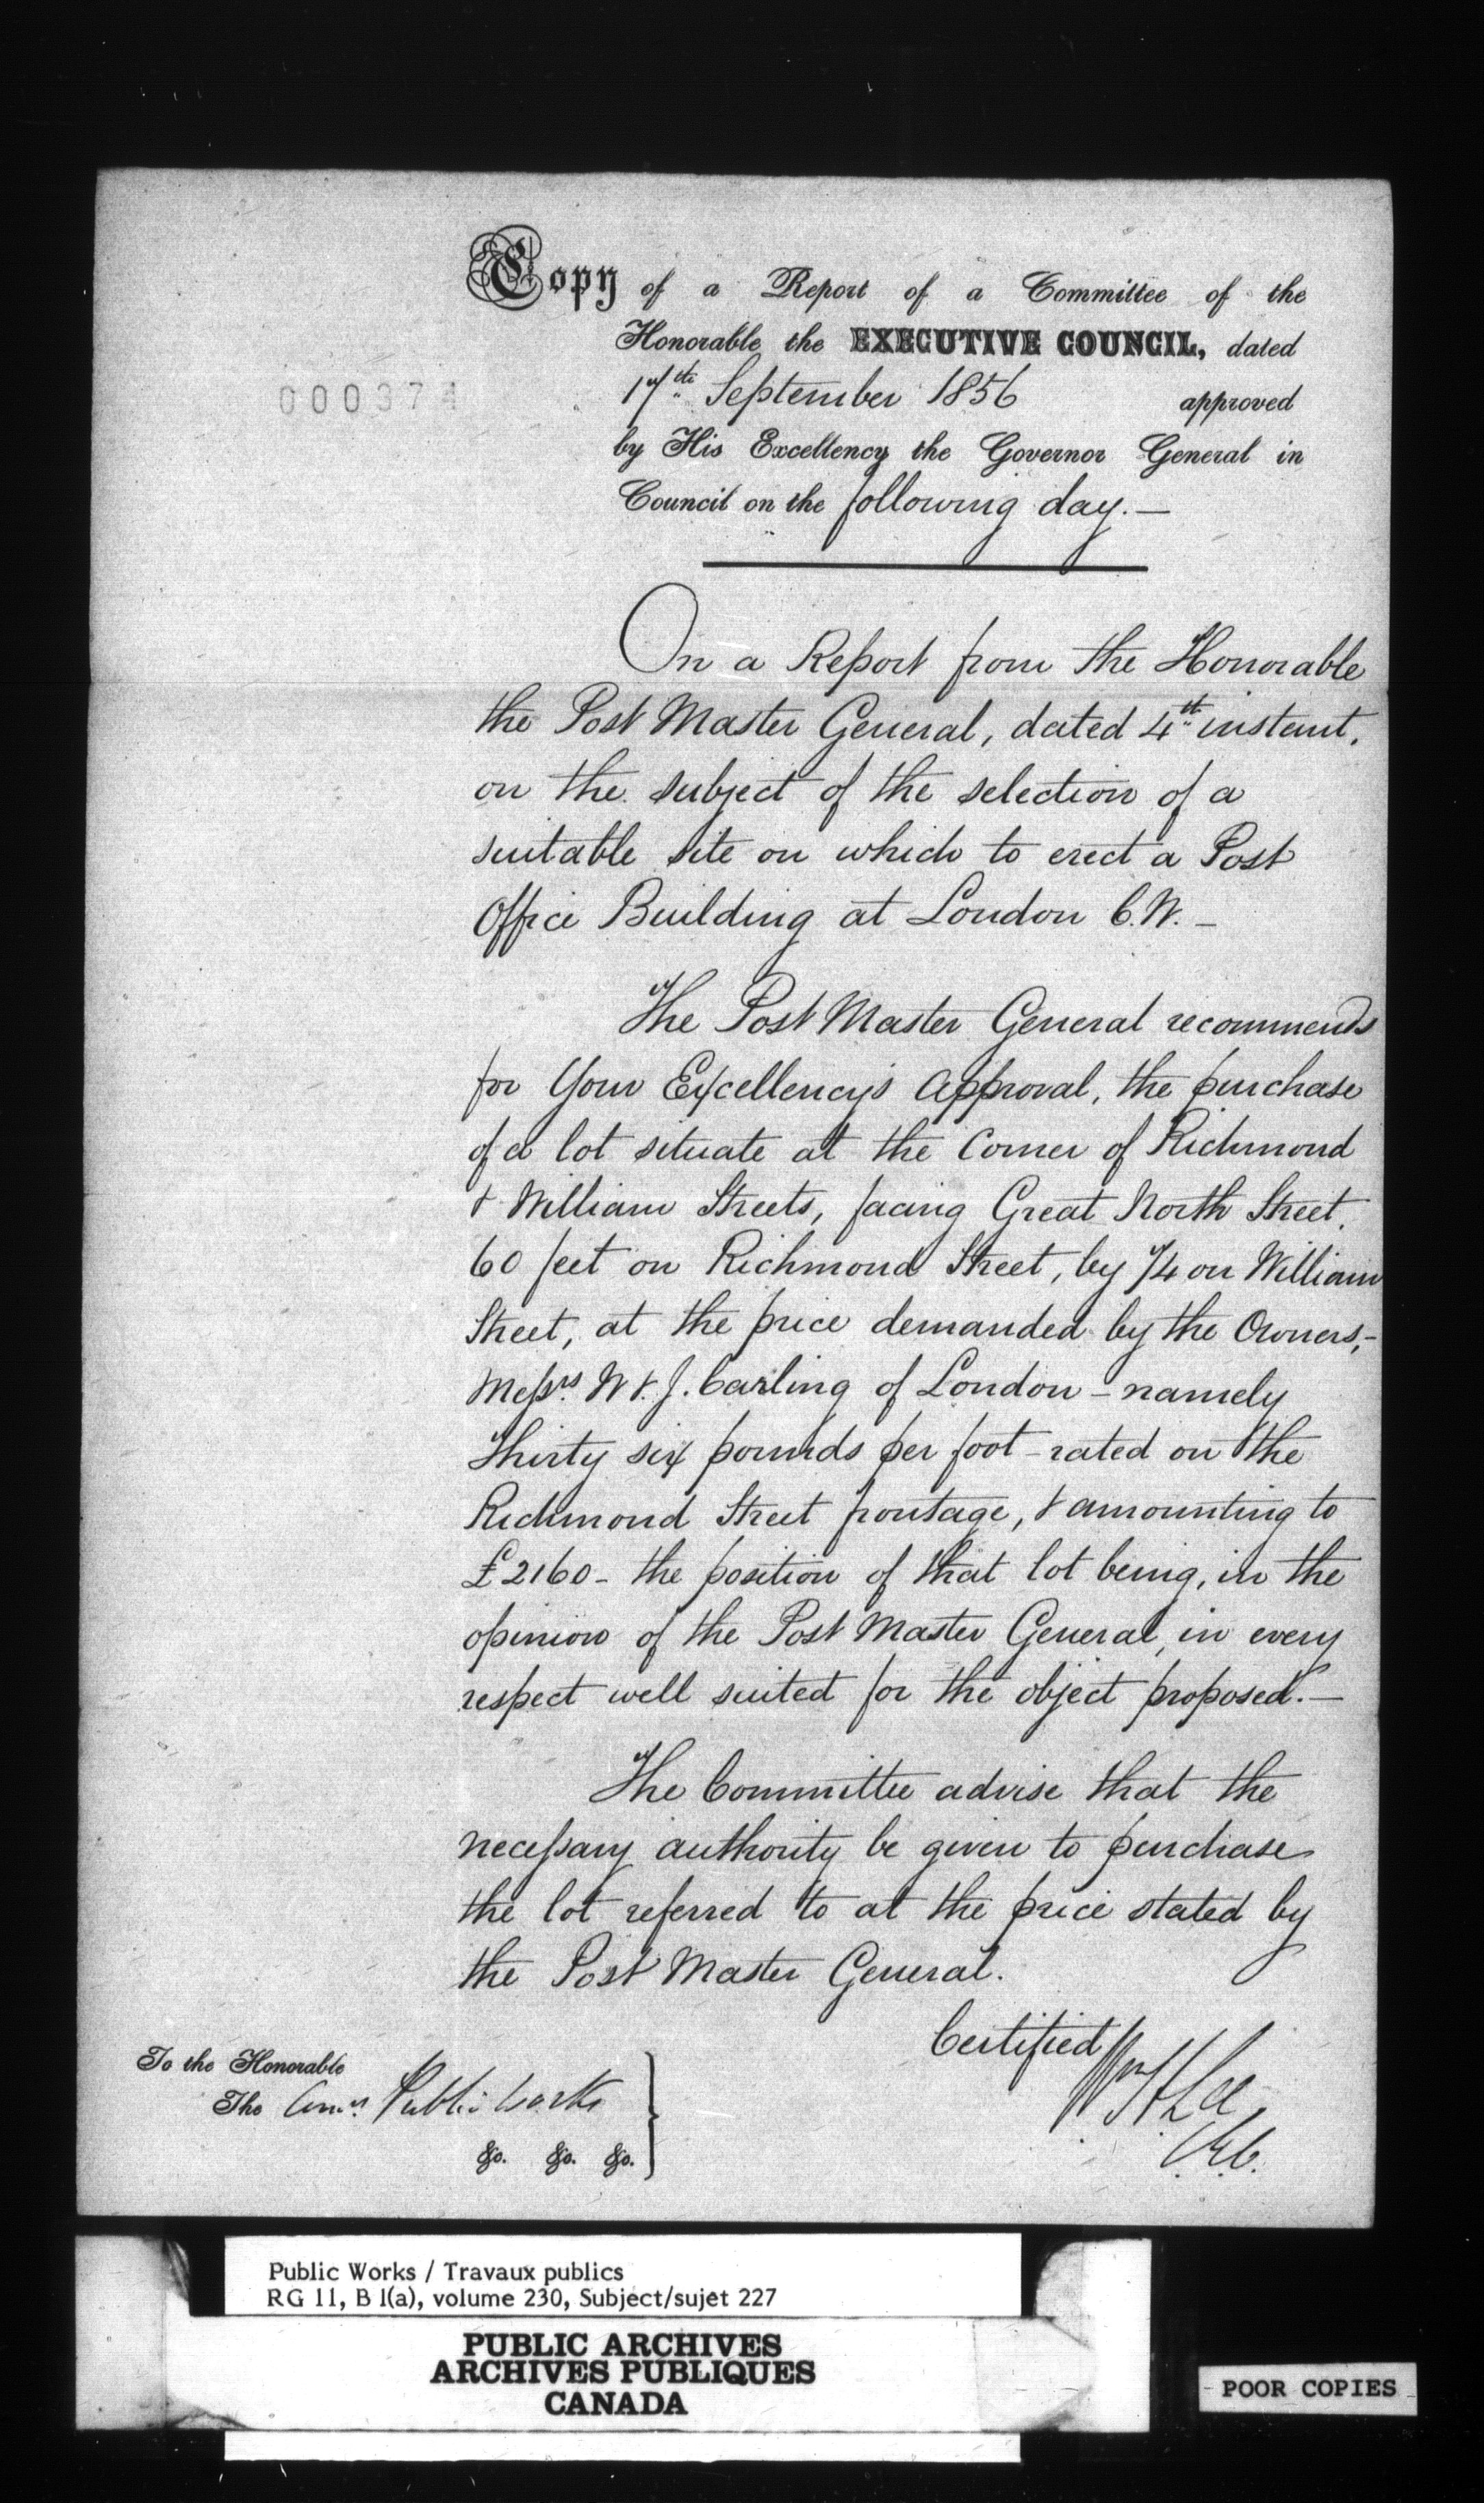 Copy of a Report of a Committee of the
Honorable the EXECUTIVE COUNCIL, dated
17th September 1856 approved
000374
by His Excellency the Governor General in
Council on the following day.—
On a Report from the Honorable
the Post Master General, dated 4th instant,
on the subject of the selection of a
suitable site on which to erect a Post
Office Building at London C.W.—
The Post Master General recommends
for Your Excellency's approval, the purchase
of a lot situate at the Corner of Richmond
& William Streets, facing Great North Street,
60 feet on Richmond Street, by 74 on William
Street, at the price demanded by the Owners,—
Messrs W & J. Carling of London – namely
Thirty six pounds per foot – rated on the
Richmond Street frontage, & amounting to
£2160 – the position of that lot being, in the
opinion of the Post Master General, in every
respect well suited for the object proposed.—
The Committee advise that the
necessary authority be given to purchase
the lot referred to at the price stated by
the Post Master General.
Certified
Wm H Lee
C.E.C.
To the Honorable
The Comrs Public Works
&c. &c. &c.
Public Works / Travaux publics
RG 11, B 1(a), volume 230, Subject/sujet 227
PUBLIC ARCHIVES
ARCHIVES PUBLIQUES
CANADA
POOR COPIES